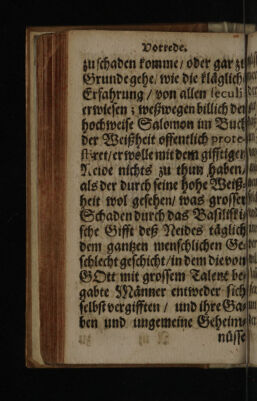 Vorrede.
zu schaden komme / oder gar zu
Grunde gehe / wie die kläglich
Erfahrung / von allen seculis
erwiesen ; weßwegen billich der
hochweise Salomon im Buch
der Weißheit offentlich prote-
stiret / er wolle mit dem gifftigen
Neide nichts zu thun haben /
als der durch seine hohe Weiß-
heit wol gesehen / was grosser
Schaden durch das Basiliski-
sche Gifft deß Neides täglich
dem gantzen menschlichen Ge-
schlecht geschicht / in dem die von
GOtt mit grossem Talent be-
gabte Männer entweder sich
selbst vergifften / und ihre Ga-
ben und ungemeine Geheim-
nüsse